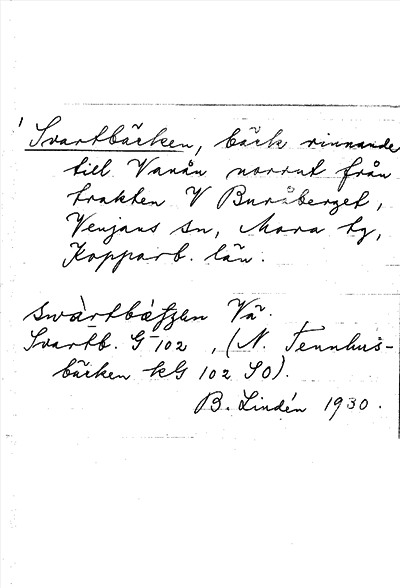 Svartbäcken, bäck rinnande
till Vanån norrut från
trakten V Buråberget,
Venjans sn, Mora tg,
Kopparb. län.
Vä.
Svartb. G 102, (N. Tennhus-
bäcken kG 102 SO).
B. Lindén 1930.